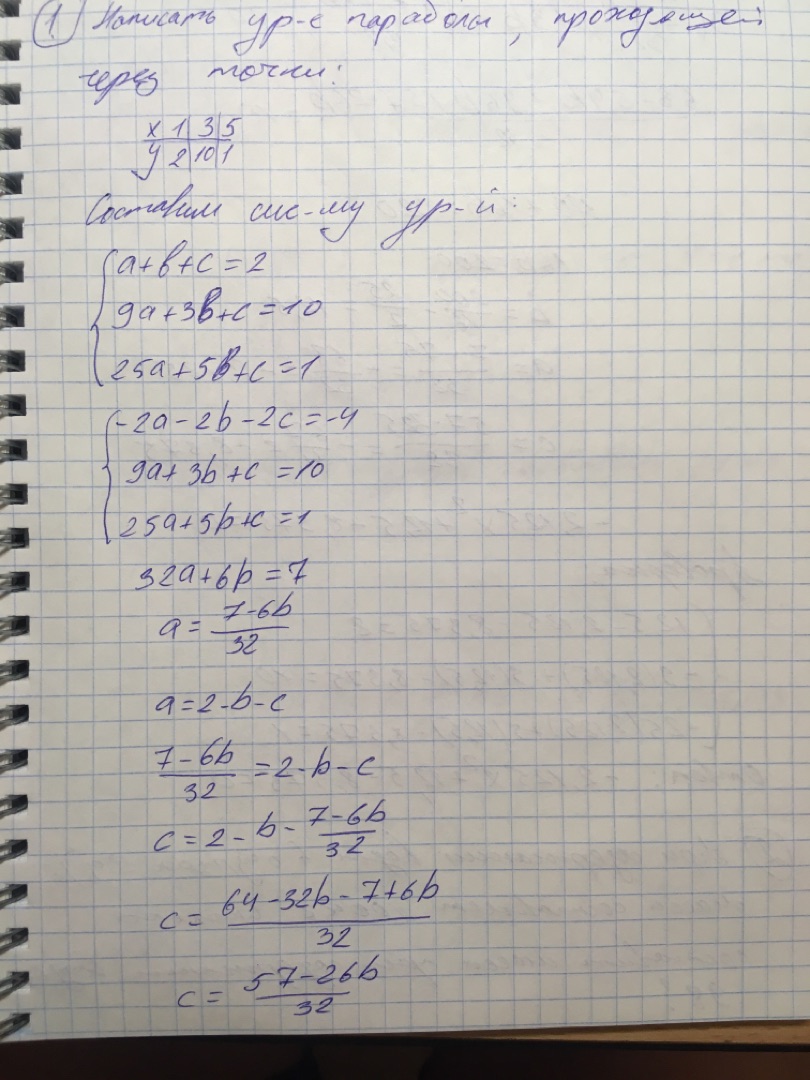 1 Написать ур-е параболы, проходящей
через точки:
x 1 3 5
y 2 10 1
Составим сис-му ур-й:
a+b+c=2
9a+3b+c=10
25a+5b+c=1
-2a-2b-2c=-4
9a+3b+c=10
25a+5b+c=1
32a+6b=7
a=\frac{7-6b}{32}
a=2-b-c
\frac{7-6b}{32}=2-b-c
c=2-b-\frac{7-6b}{32}
c=\frac{64-32b-7+6b}{32}
c=\frac{57-26b}{32}